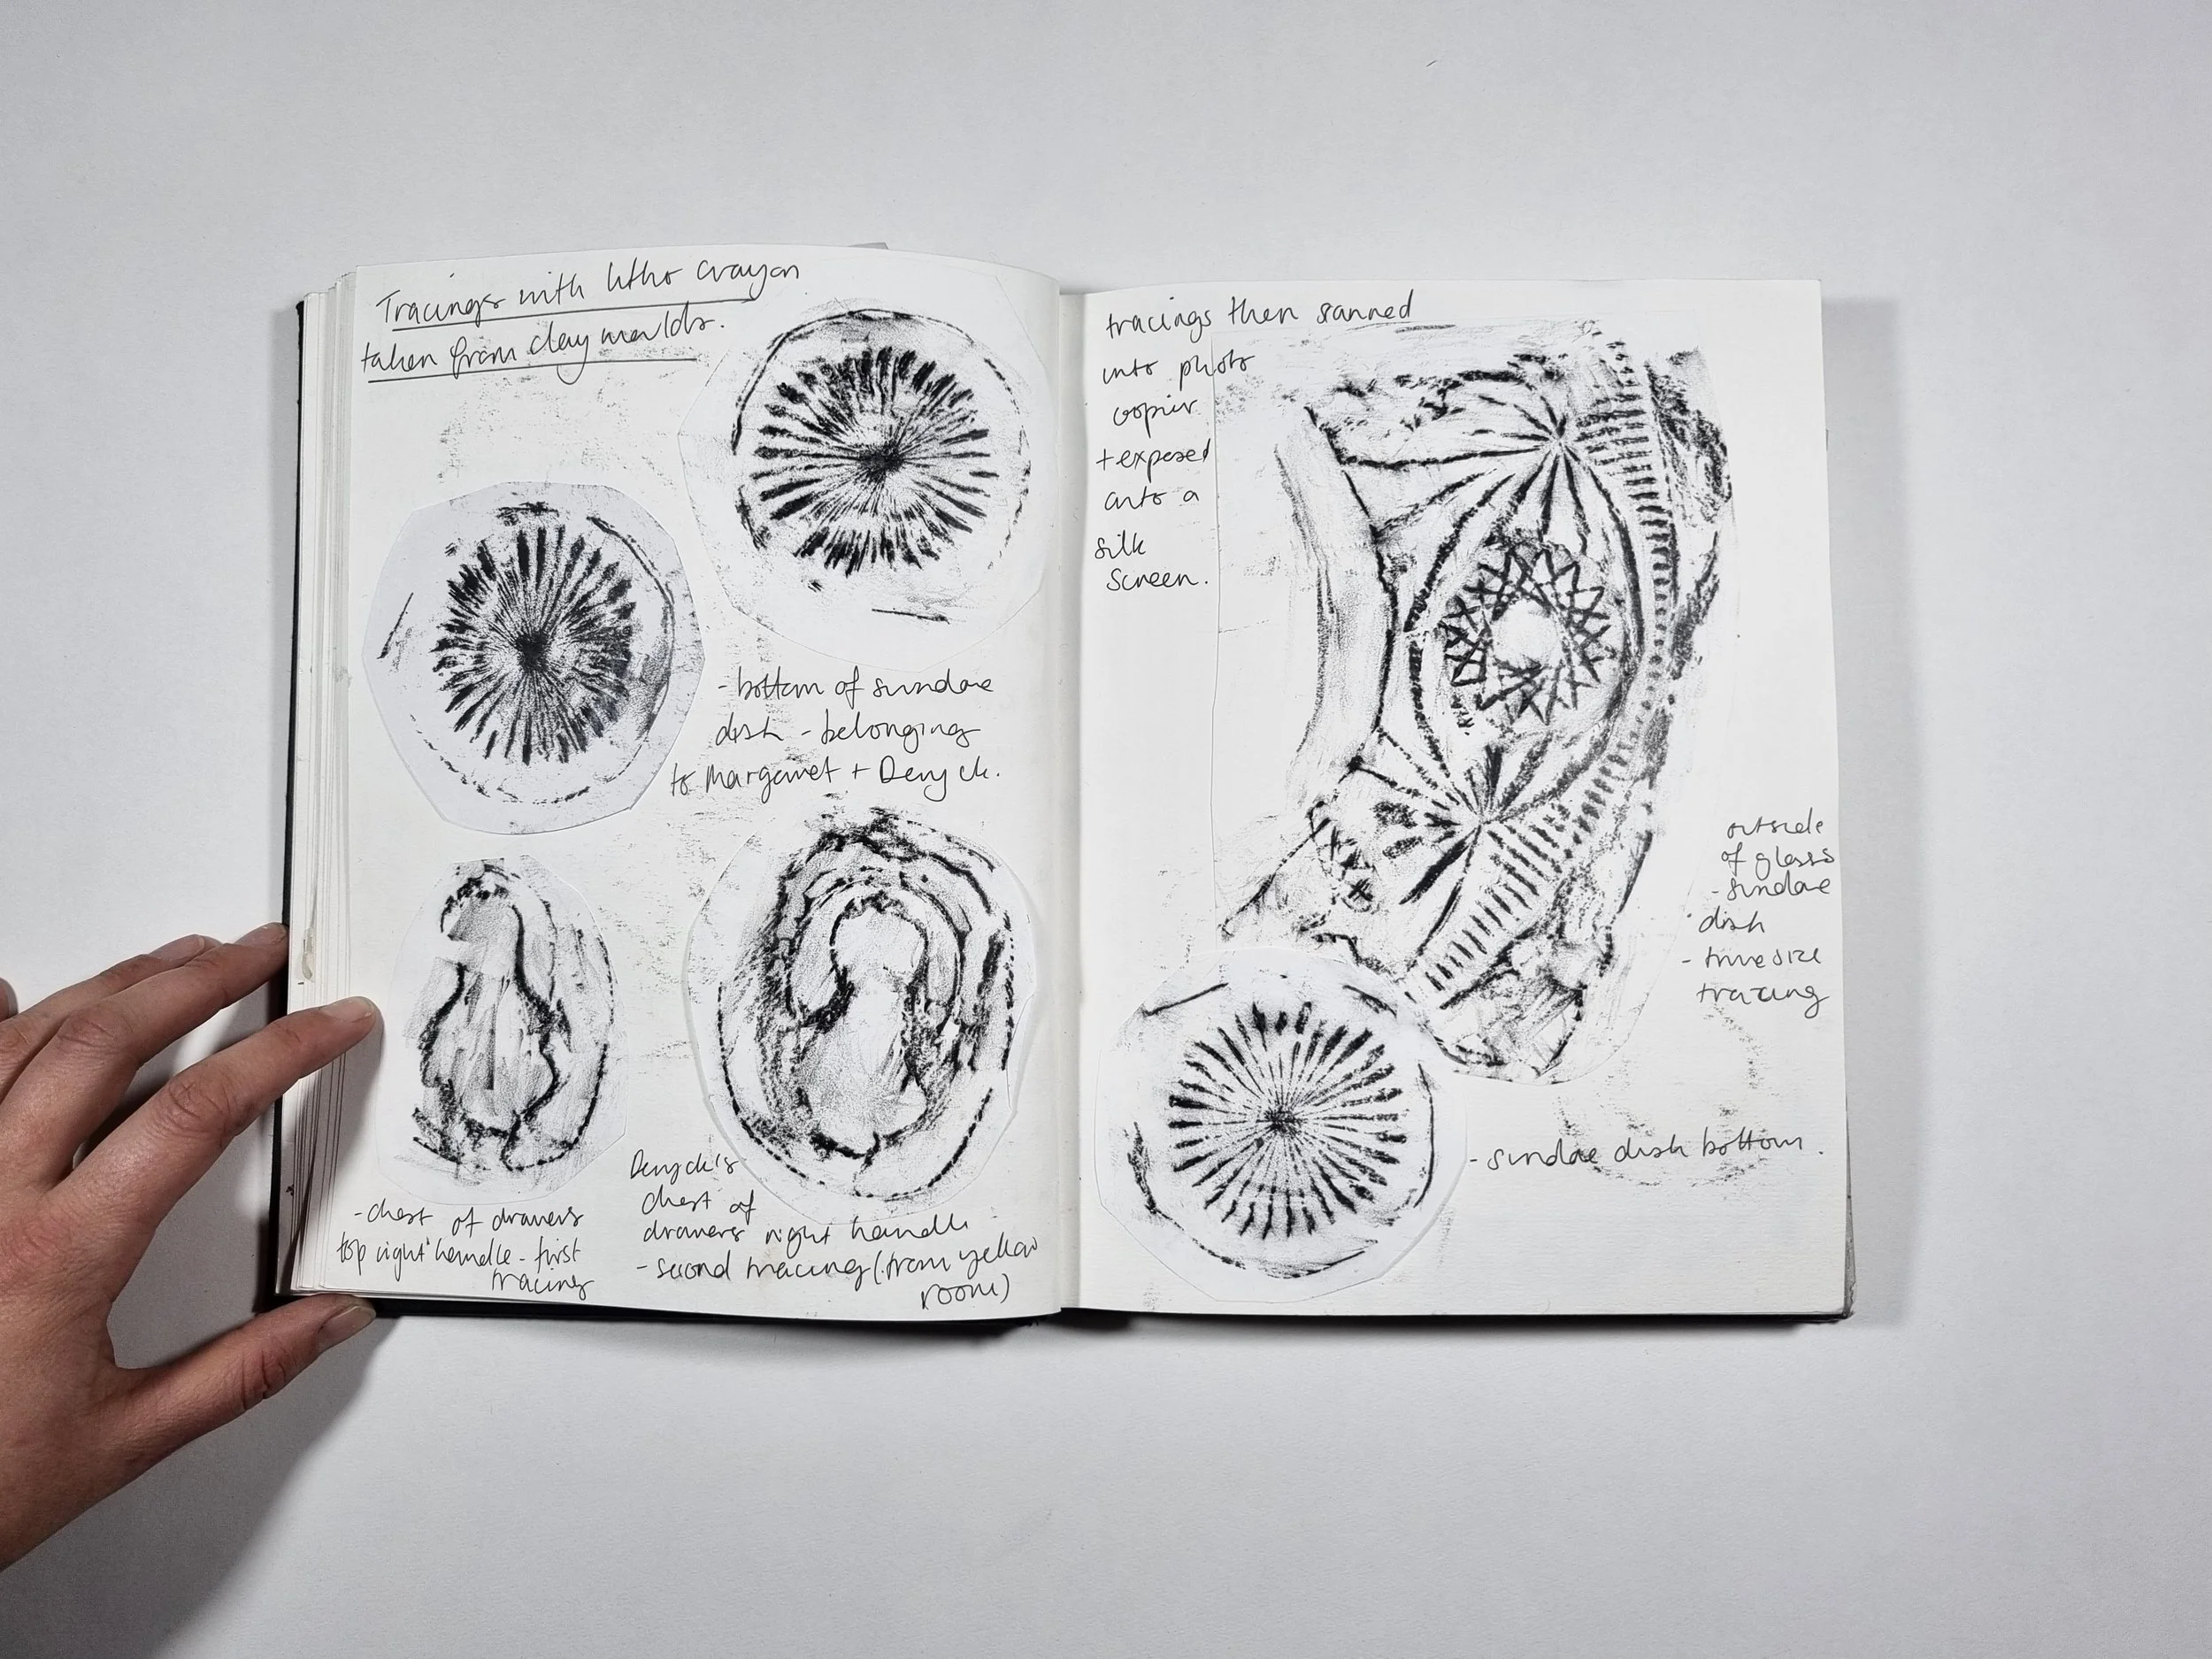 Tracings with litho crayon
taken from clay moulds.
- bottom of sundae
dish - belonging
to Margaret + Deryck.
- chest of drawers
top right handle - first
tracing
Deryck's
chest of
drawers right handle -
- second tracing (from yellow
room)
tracings then sanned
into photo
copier
+ exposed
onto a
silk
screen.
outside
of glass
- sundae
dish
- true size
tracing
- sundae dish bottom.